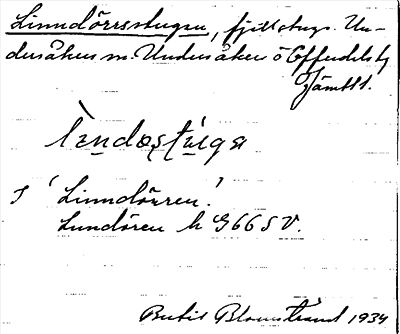 Linndörrsstugan, fjällstuga. Un-
dersåkers sn. Undersåkers o Offerdals tg
Jämtl.
lìndœʂt̀ùga
s 'Linndörren'.
Lundören h 966 SV.
Bertil Blomstrand 1934